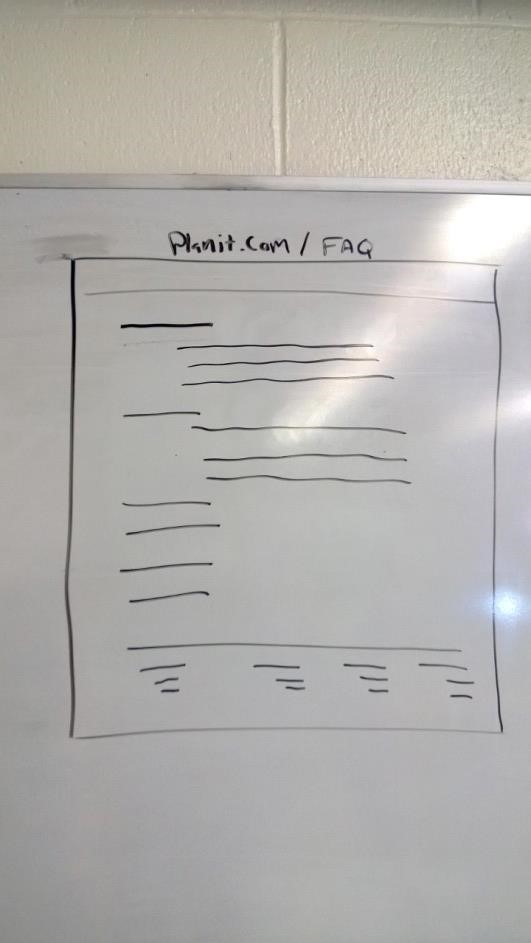 Planit.Com / FAQ